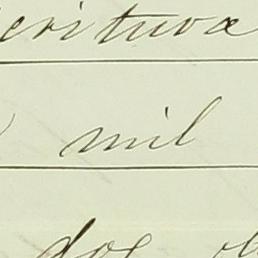 critura
mil
dos